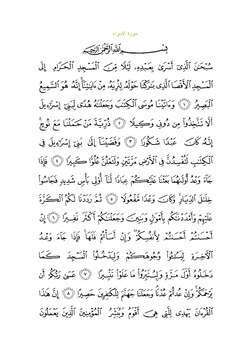 سورة الإسراء
بِسْمِ ٱللَّهِ ٱلرَّحْمَٰنِ ٱلرَّحِيمِ
سُبْحَٰنَ ٱلَّذِىٓ أَسْرَىٰ بِعَبْدِهِۦ لَيْلًا مِّنَ ٱلْمَسْجِدِ ٱلْحَرَامِ إِلَى
ٱلْمَسْجِدِ ٱلْأَقْصَا ٱلَّذِى بَٰرَكْنَا حَوْلَهُۥ لِنُرِيَهُۥ مِنْ ءَايَٰتِنَآ إِنَّهُۥ هُوَ ٱلسَّمِيعُ
ٱلْبَصِيرُ ١ وَءَاتَيْنَا مُوسَى ٱلْكِتَٰبَ وَجَعَلْنَٰهُ هُدًى لِّبَنِىٓ إِسْرَٰٓءِيلَ
أَلَّا تَتَّخِذُوا۟ مِن دُونِى وَكِيلًا ٢ ذُرِّيَّةَ مَنْ حَمَلْنَا مَعَ نُوحٍ
إِنَّهُۥ كَانَ عَبْدًا شَكُورًا ٣ وَقَضَيْنَآ إِلَىٰ بَنِىٓ إِسْرَٰٓءِيلَ فِى
ٱلْكِتَٰبِ لَتُفْسِدُنَّ فِى ٱلْأَرْضِ مَرَّتَيْنِ وَلَتَعْلُنَّ عُلُوًّا كَبِيرًا ٤ فَإِذَا
جَآءَ وَعْدُ أُولَىٰهُمَا بَعَثْنَا عَلَيْكُمْ عِبَادًا لَّنَآ أُو۟لِى بَأْسٍ شَدِيدٍ فَجَاسُوا۟
خِلَٰلَ ٱلدِّيَارِ وَكَانَ وَعْدًا مَّفْعُولًا ٥ ثُمَّ رَدَدْنَا لَكُمُ ٱلْكَرَّةَ
عَلَيْهِمْ وَأَمْدَدْنَٰكُم بِأَمْوَٰلٍ وَبَنِينَ وَجَعَلْنَٰكُمْ أَكْثَرَ نَفِيرًا ٦ إِنْ
أَحْسَنتُمْ أَحْسَنتُمْ لِأَنفُسِكُمْ وَإِنْ أَسَأْتُمْ فَلَهَا فَإِذَا جَآءَ وَعْدُ
ٱلْءَاخِرَةِ لِيَسُۥٓـُٔوا۟ وُجُوهَكُمْ وَلِيَدْخُلُوا۟ ٱلْمَسْجِدَ كَمَا
دَخَلُوهُ أَوَّلَ مَرَّةٍ وَلِيُتَبِّرُوا۟ مَا عَلَوْا۟ تَتْبِيرًا ٧ عَسَىٰ رَبُّكُمْ أَن
يَرْحَمَكُمْ وَإِنْ عُدتُّمْ عُدْنَا وَجَعَلْنَا جَهَنَّمَ لِلْكَٰفِرِينَ حَصِيرًا ٨ إِنَّ هَٰذَا
ٱلْقُرْءَانَ يَهْدِى لِلَّتِى هِىَ أَقْوَمُ وَيُبَشِّرُ ٱلْمُؤْمِنِينَ ٱلَّذِينَ يَعْمَلُونَ